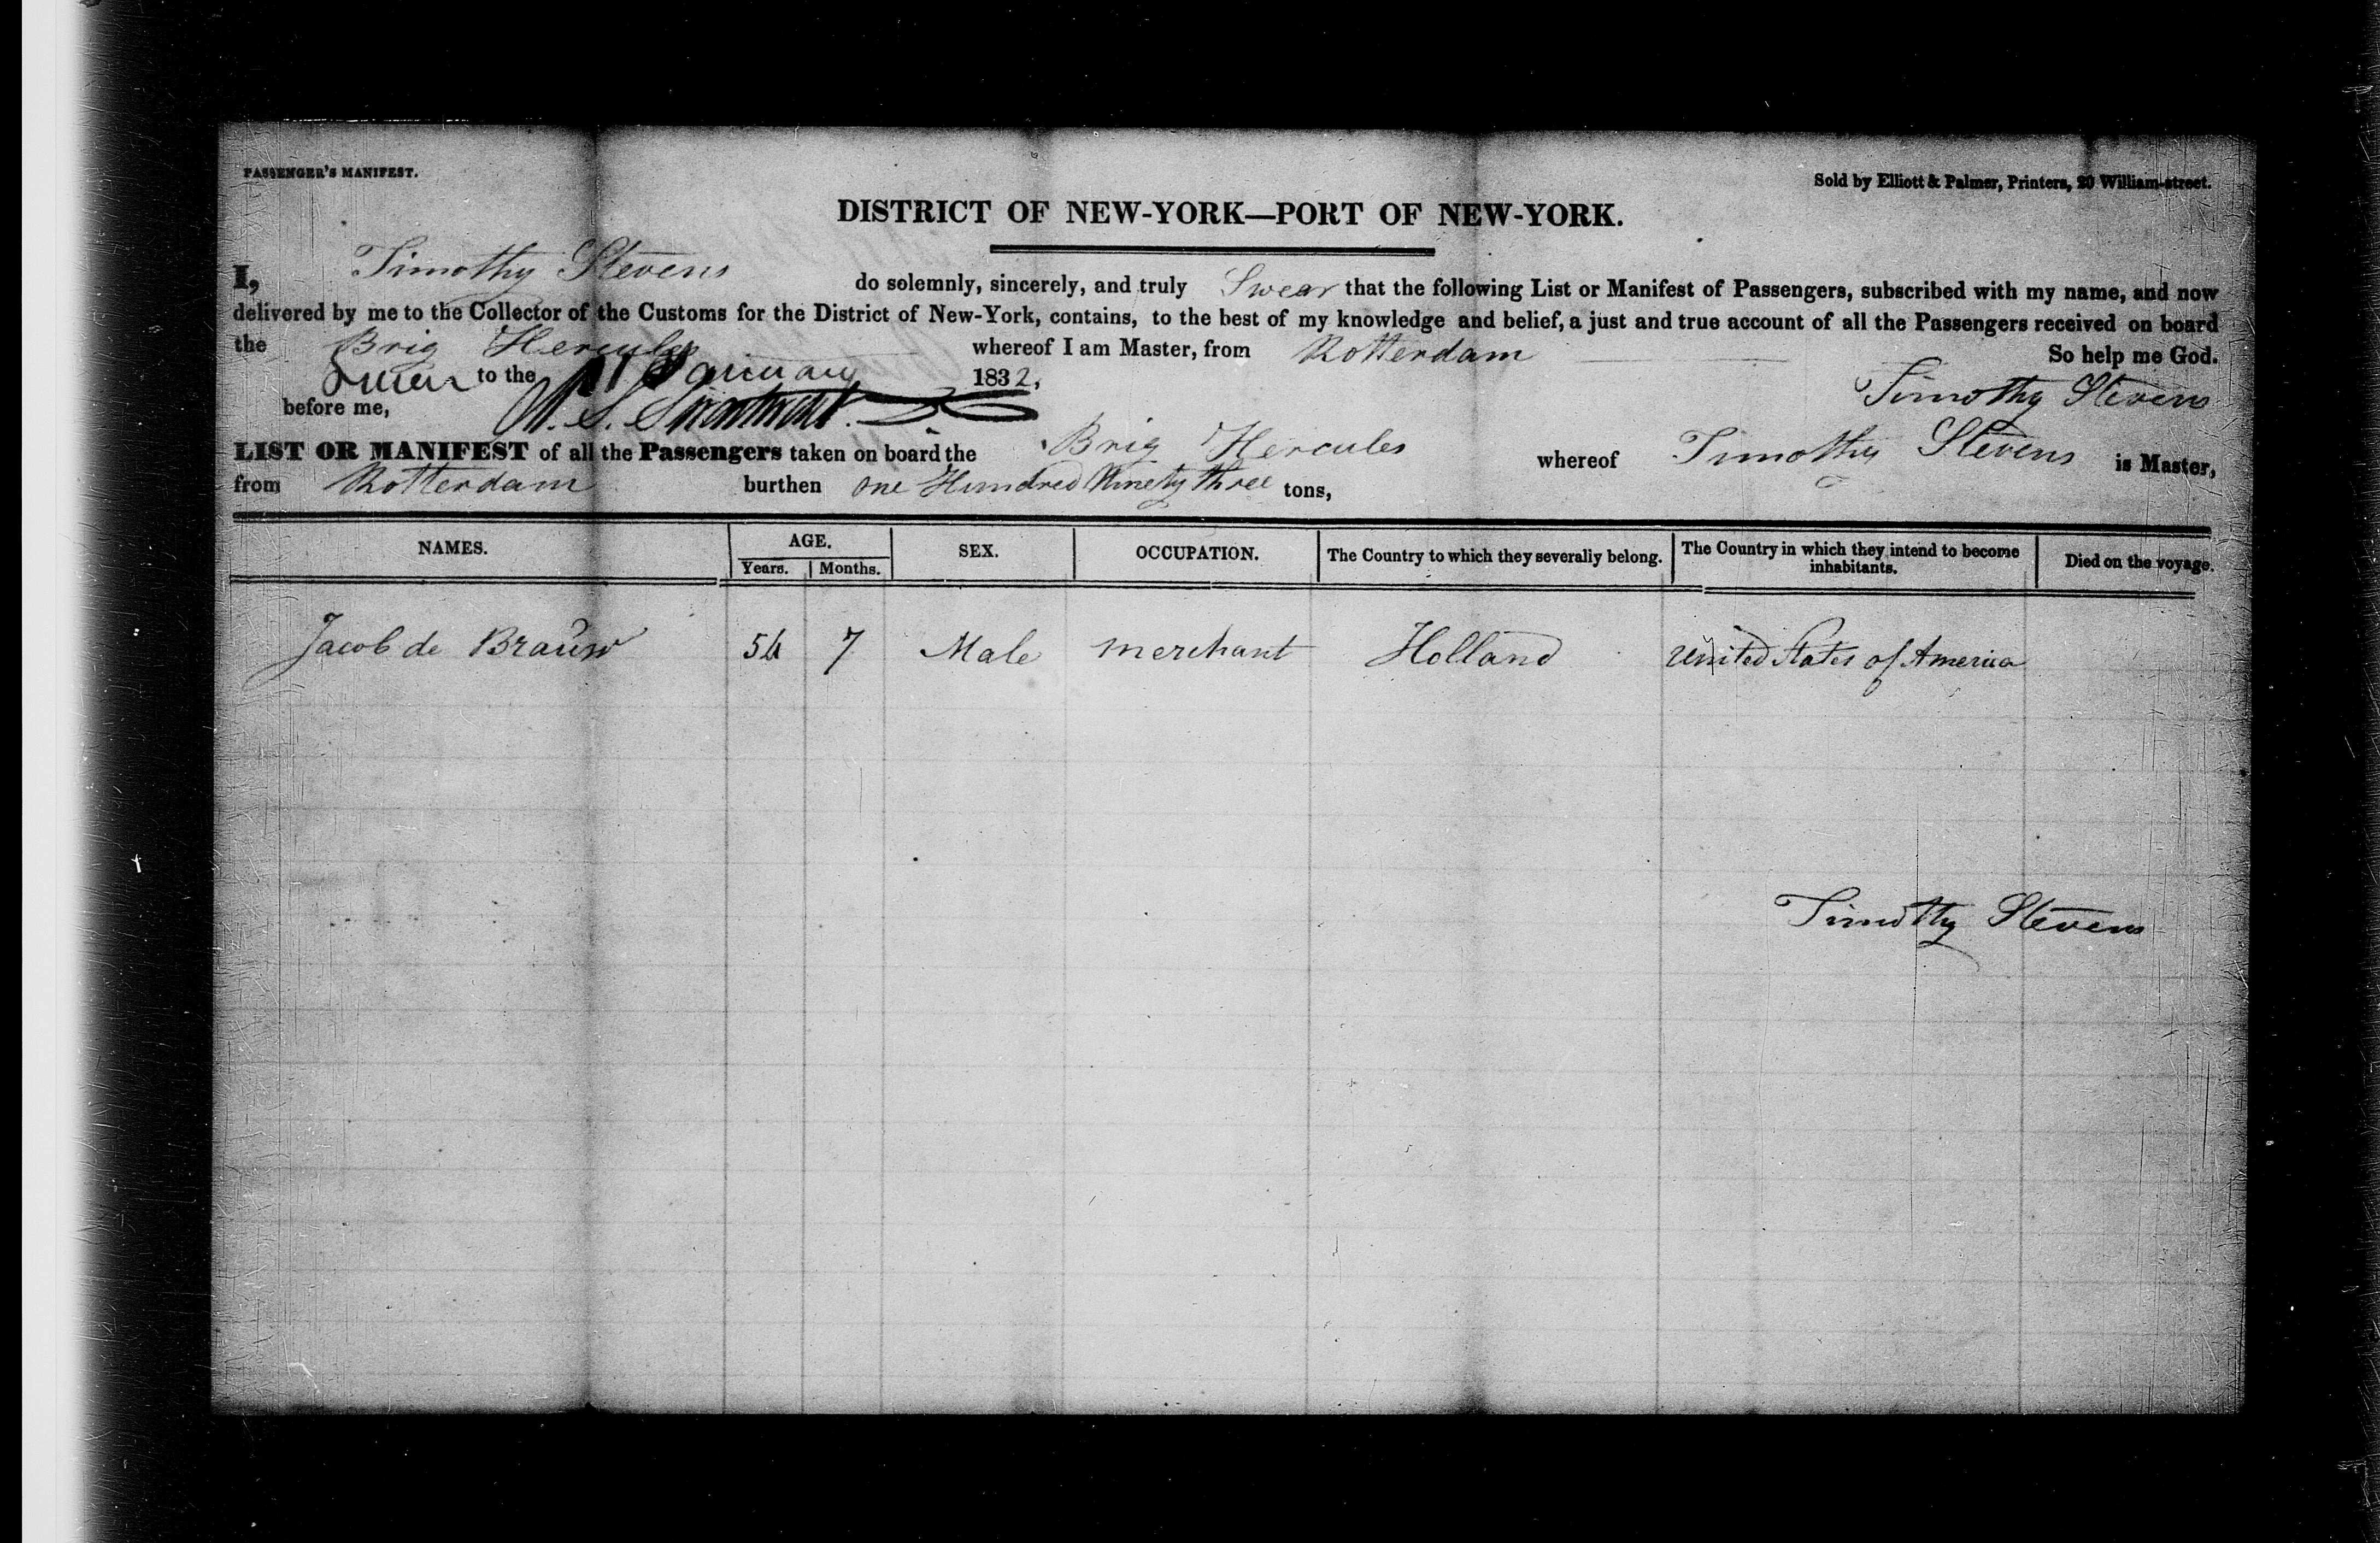 PASSENGER'S MANIFEST.
Sold by Elliott & Palmer, Printers, 20 William-street.
DISTRICT OF NEW-YORK—PORT OF NEW-YORK.
I, Timothy Stevens do solemnly, sincerely, and truly Swear that the following List or Manifest of Passengers, subscribed with my name, and now
delivered by me to the Collector of the Customs for the District of New-York, contains, to the best of my knowledge and belief, a just and true account of all the Passengers received on board
the Brig Hercules whereof I am Master, from Rotterdam So help me God.
to the January 1832,
Timothy Stevens
before me,
LIST OR MANIFEST of all the Passengers taken on board the Brig Hercules whereof Timothy Stevens is Master,
from Rotterdam burthen one Hundred Ninety three tons,
NAMES. AGE. SEX. OCCUPATION. The Country to which they severally belong. The Country in which they intend to become inhabitants. Died on the voyage.
Years. Months.
Jacob de 54 7 Male merchant Holland United States of America
Timothy Stevens